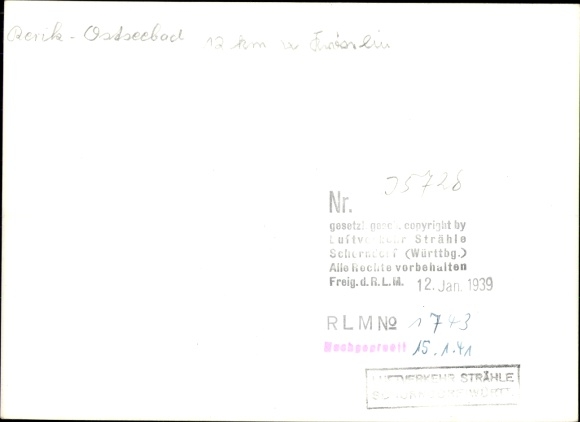 Rerik - Ostseebad 12 km w Kröslin
Nr. 25728
gesetzl. gesch. copyright by
Luftverkehr Strähle
Schorndorf (Württbg.)
Alle Rechte vorbehalten
Freig. d. R. L. M. 12. Jan. 1939
RLM No i 743
Nachgeprüft 15.1.41
LUFTVERKEHR STRÄHLE
SCHORNDORF WÜRTT.